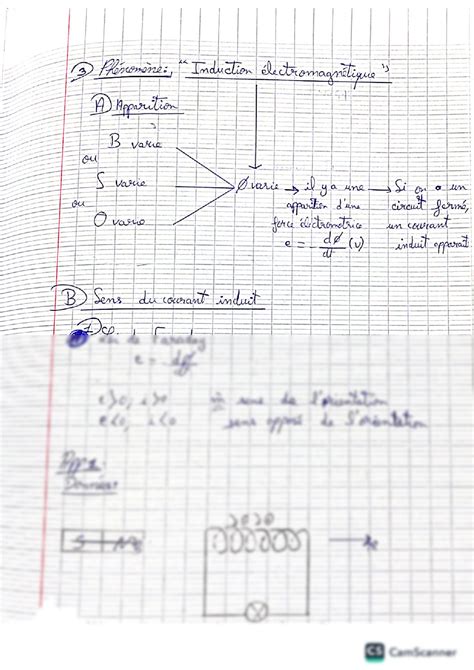 3) Phénomène: "Induction électromagnétique"
A) Apparition
B varie
ou
S varie
ou
Θ varie
Ø varie → il y a une apparition d'une force électromotrice e = - dØ/dt (V) → Si on a un circuit fermé, un courant induit apparait
B) Sens du courant induit
Loi de Faraday
e = - dØ
e>0, i>0 sens de l'orientation
e<0, i<0 sens opposé de l'orientation
App 1:
Données:
S N
CS CamScanner